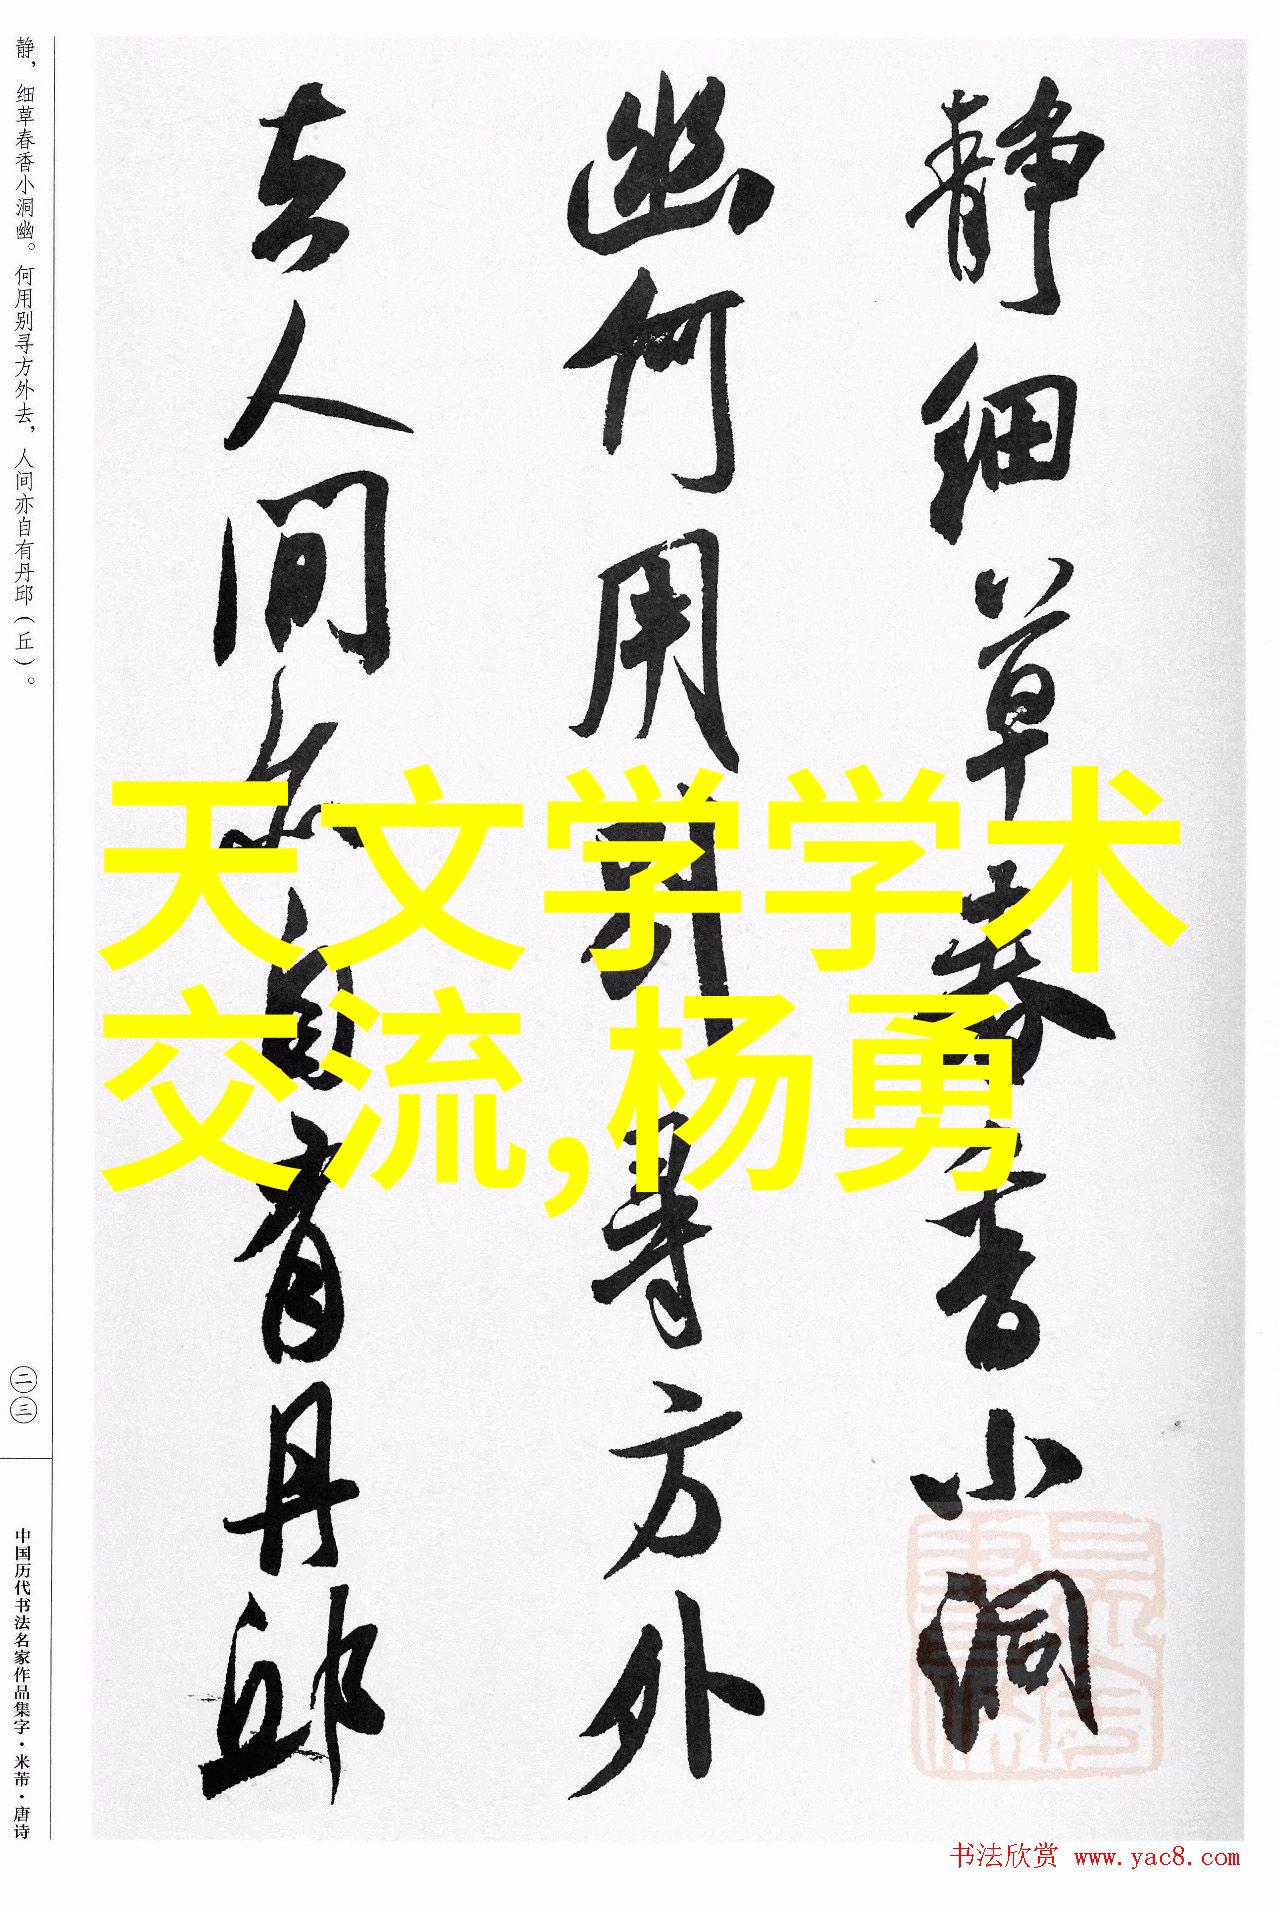 静细草春香小洞
幽何用别寻方外
去人间亦自有丹邱
天文学学术
交流,杨勇
静，细草春香小洞幽。何用别寻方外去，人间亦自有丹邱（丘）。
二三
中国历代书法名家作品集字·米芾·唐诗
书法欣赏 www.yac8.com